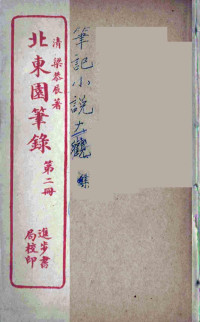 清 梁恭辰著
北東園筆錄
第二冊
進步書
局校印
筆記小說大觀 集